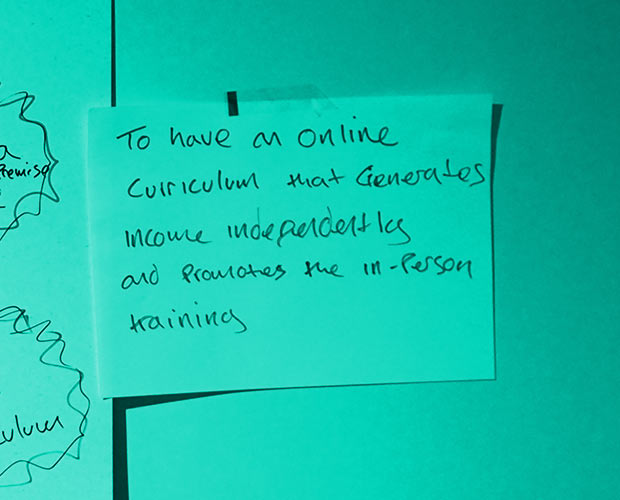 a
Premise
To have an online
Curriculum that Generates
income independently
and Promotes the in-Person
training
ulum